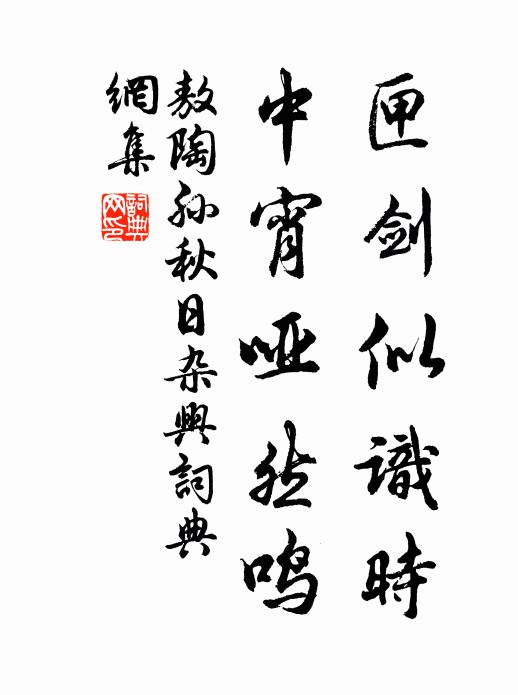 匣剑似識時
中宵哑然鳴
敖陶孙秋日杂興詞典
網集
詞典网印